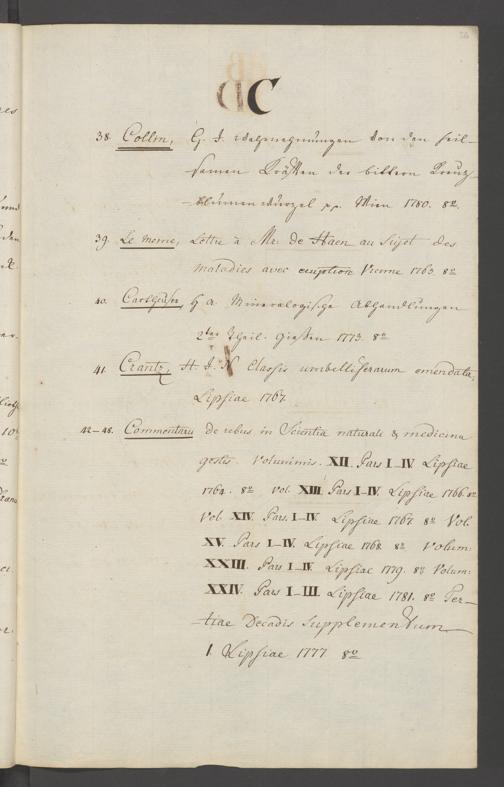 C
38. Collin, H. J. Wahrnehmungen von den heil-
samen Kräften der bittern Kreuz-
blumenwurzel pp. Wien 1780. 8o.
39. Le meme, Lettre à Mr. de Haen au Sujet des
maladies avec eruption Vienne 1763. 8o
40. Cartheuser, F. A. Mineralogische Abhandlungen
2ter Theil. Gießen 1773. 8o
41. Crantz, H. J. N. Classis umbelliferarum emendata,
Lipsiae 1767.
42–48. Commentarii de rebus in Scientia naturali & medicina
gestis. Voluminis. XII. Pars I–IV. Lipsiae
1764. 8o vol. XIII. Pars I–IV. Lipsiae 1766. 8o
Vol. XIV. Pars. I–IV. Lipsiae 1767. 8o Vol.
XV. Pars I–IV. Lipsiae 1768. 8o Volum:
XXIII. Pars I–IV. Lipsiae 1779. 8o Volum:
XXIV. Pars I–III. Lipsiae 1781. 8o Ter-
tiae Decadis Supplementum
I. Lipsiae 1777. 8o